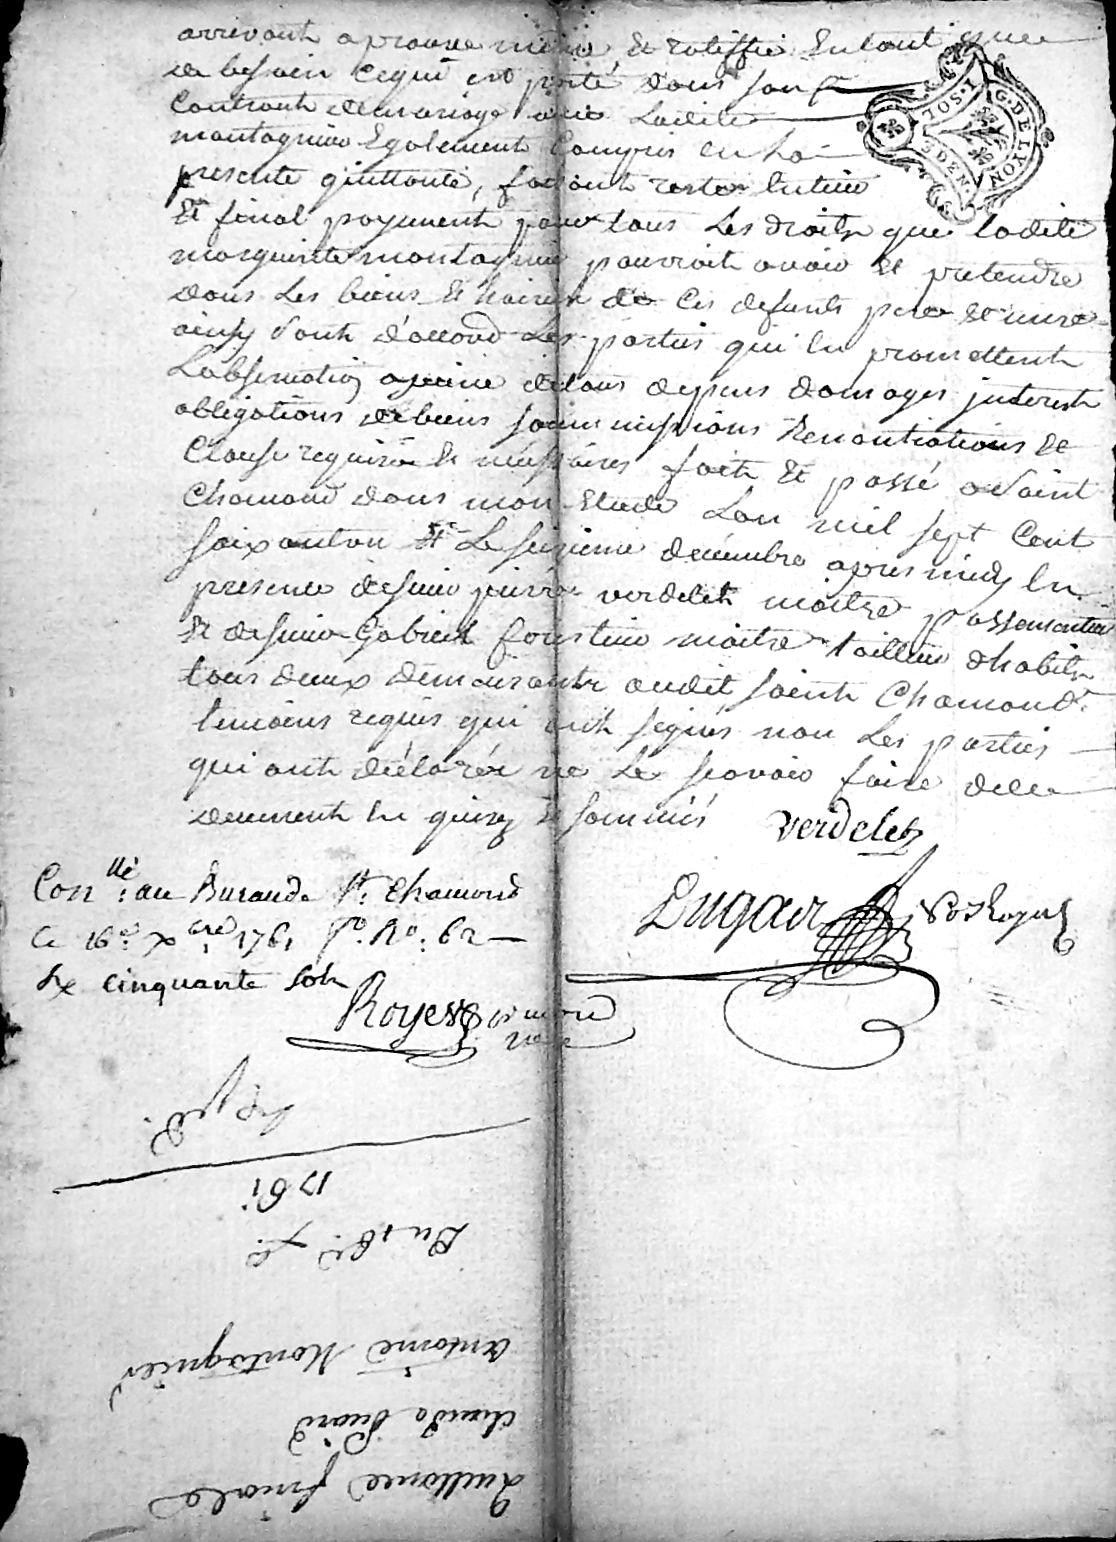 arrivant aprouve même et ratiffie entant que
de besoin ce qui est porté dans son
Contract de mariage avec Ladite
montagnier Egalement Compris en La
presente quittance, faisant reste entier
Et final payement pour tous Les droits que ladite
marguerite montagnier pourroit avoir et pretendre
dans Les biens et hoiries de Ces defunts pere et mere
ainsy sont d'accord Les parties qui en promettent
L'observation a peine de tous depens domages interest
obligations de biens soummissions Renontiations et
Clause requises et necessaires fait et passé a Saint
Chamond dans mon Etude Lan mil sept Cent
soixante un et Le seizieme decembre apres midy en
presence de sieur pierre verdelet maitre passementier
et de sieur Gabriel maitre tailleur d'habits
tous deux demeurants audit saint Chamond
temoins requis qui ont signés non Les parties
qui ont déclarés ne Le sçavoir faire de ce
deuement enquis et sommés
verdelet
Con.llé au Bureau de St. Chamond
Ce 16e. Xbre 1761 fo. Ro. 62
Rx cinquante sols
Dugair
Royer
G. DE LYON
1 SOL
DEN
1761
Du 16. Xbre
Antoine Montagnier
Claude
Quittance finale